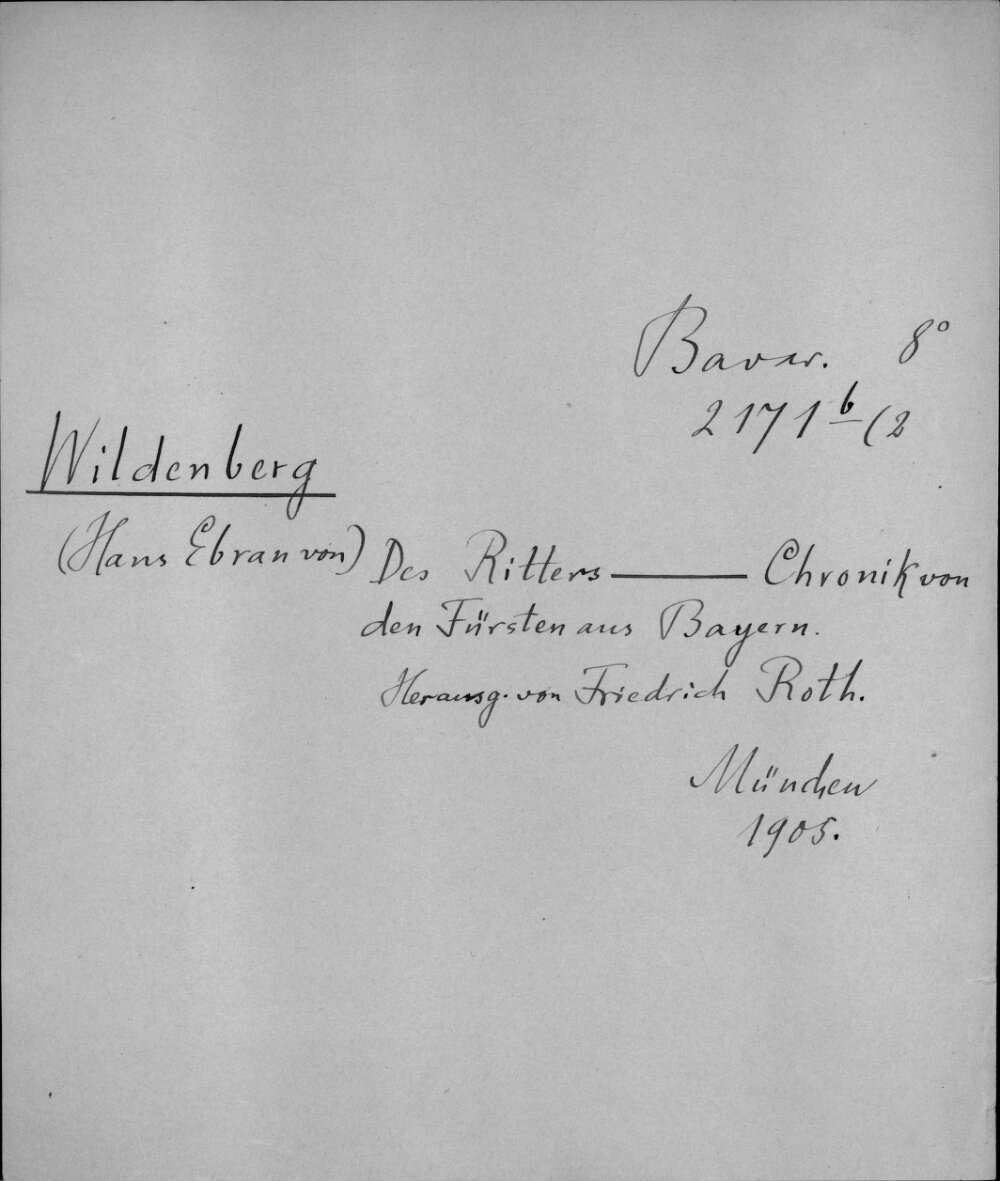 Bavar. 8°
2171 b (2
Wildenberg
(Hans Ebran von) Des Ritters — Chronik von
den Fürsten aus Bayern.
Herausg. von Friedrich Roth.
München
1905.